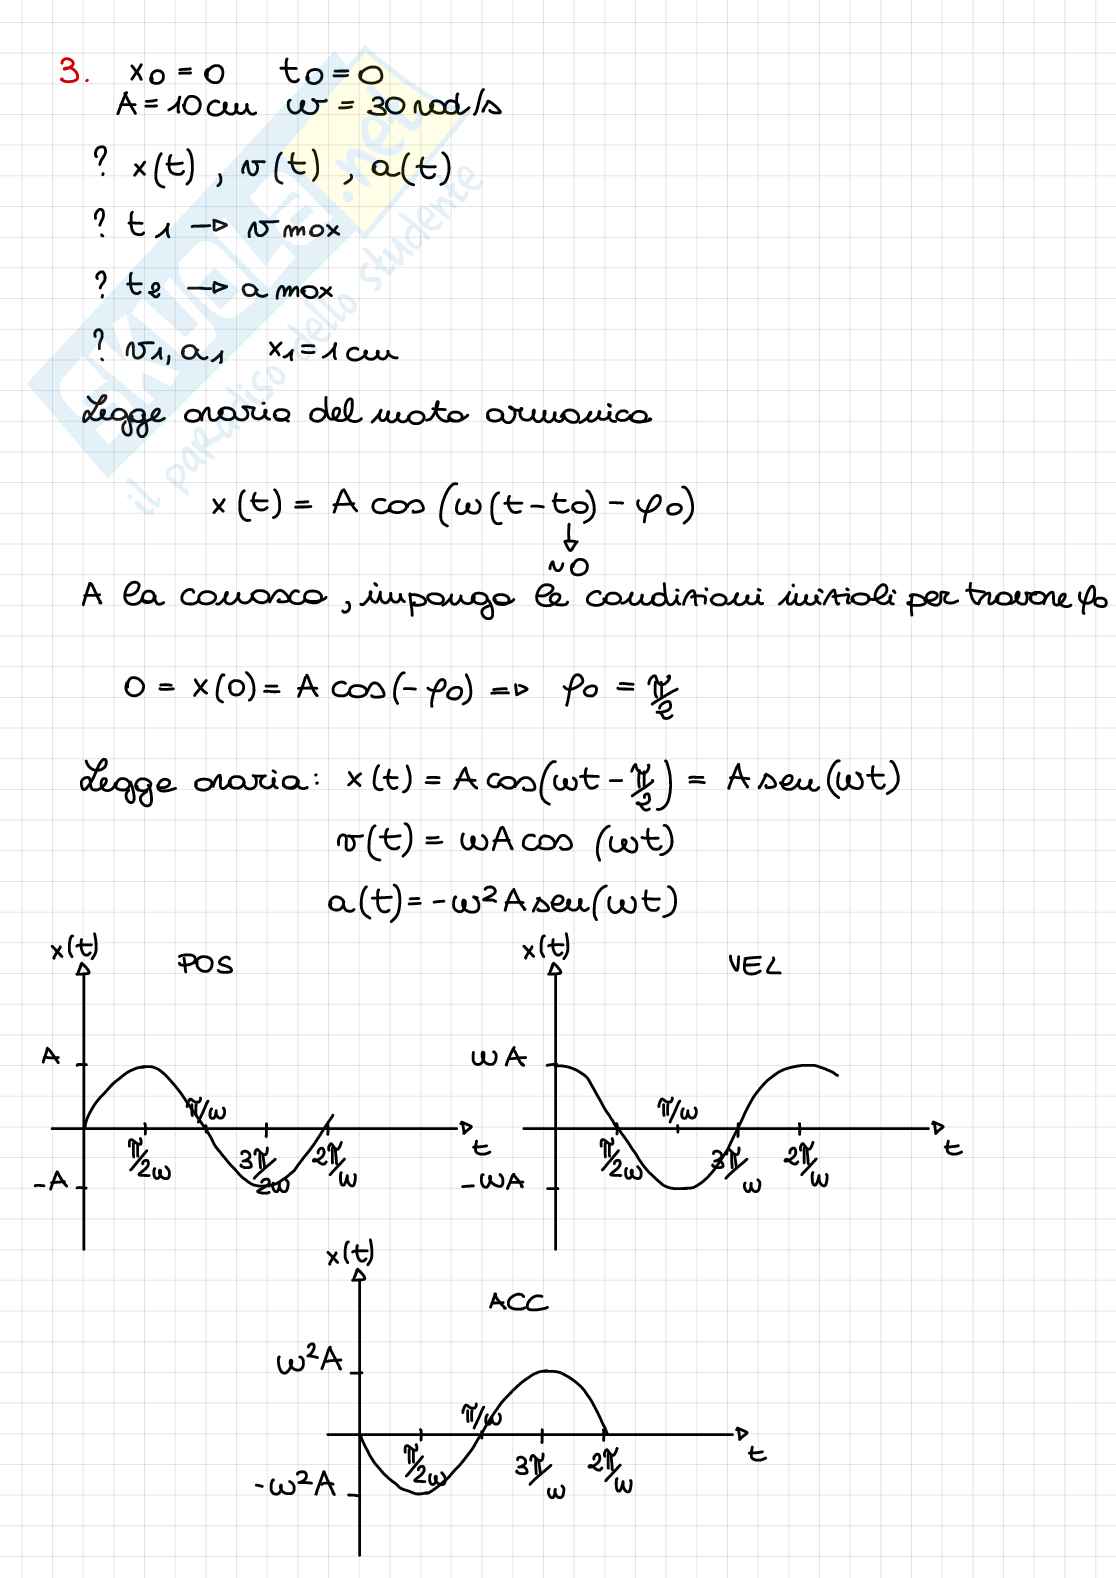 3. x0 = 0 t0 = 0
A = 10 cm ω = 30 rad/s
? x(t), v(t), a(t)
? t1 → v max
? t2 → a max
? v1, a1 x1 = 1 cm
Legge oraria del moto armonico
x(t) = A cos(ω(t - t0) - φ0)
↓
~0
A la conosco, impongo le condizioni iniziali per trovare φ0
0 = x(0) = A cos(-φ0) => φ0 = π/2
Legge oraria: x(t) = A cos(ωt - π/2) = A sen(ωt)
v(t) = ωA cos (ωt)
a(t) = -ω²A sen(ωt)
x(t) POS
A
π/ω
π/2ω 3π/2ω 2π/ω t
-A
x(t) VEL
ωA
π/ω
π/2ω 3π/ω 2π/ω t
-ωA
x(t)
ACC
ω²A
π/ω
π/2ω 3π/ω 2π/ω t
-ω²A
SKUOLA.net
il paradiso dello studente